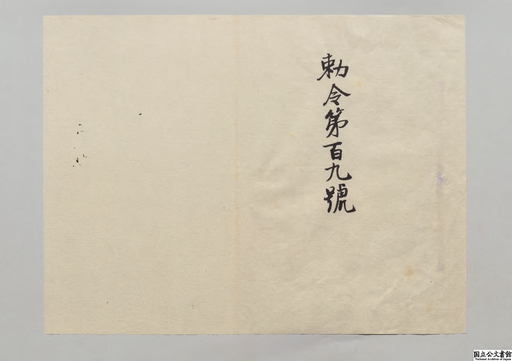 勅令第百九號
国立公文書館
National Archives of Japan